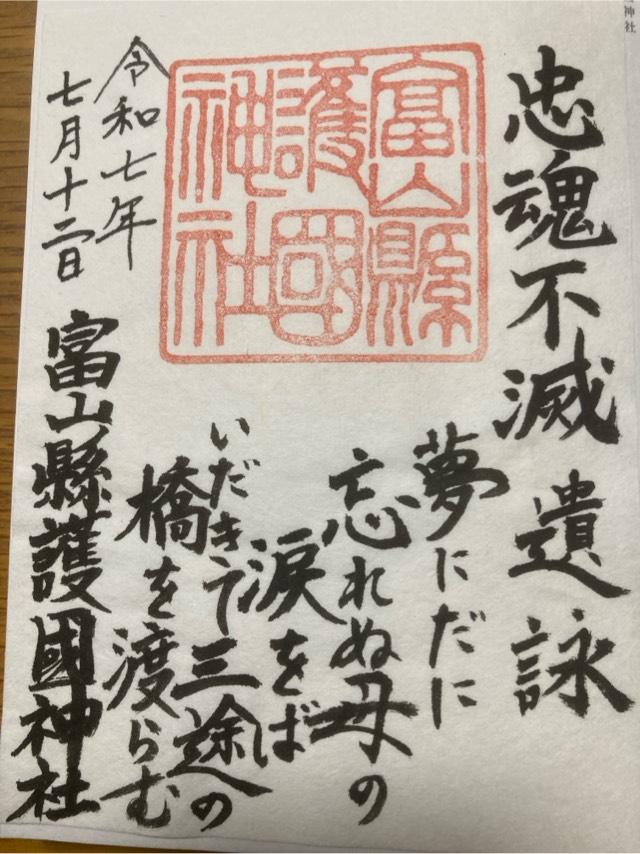 神社
忠魂不滅 遺詠
富山縣
護國
神社
夢にだに
忘れぬ母の
涙をば
いだきて三途の
橋を渡らむ
令和七年
七月十二日
富山縣護國神社